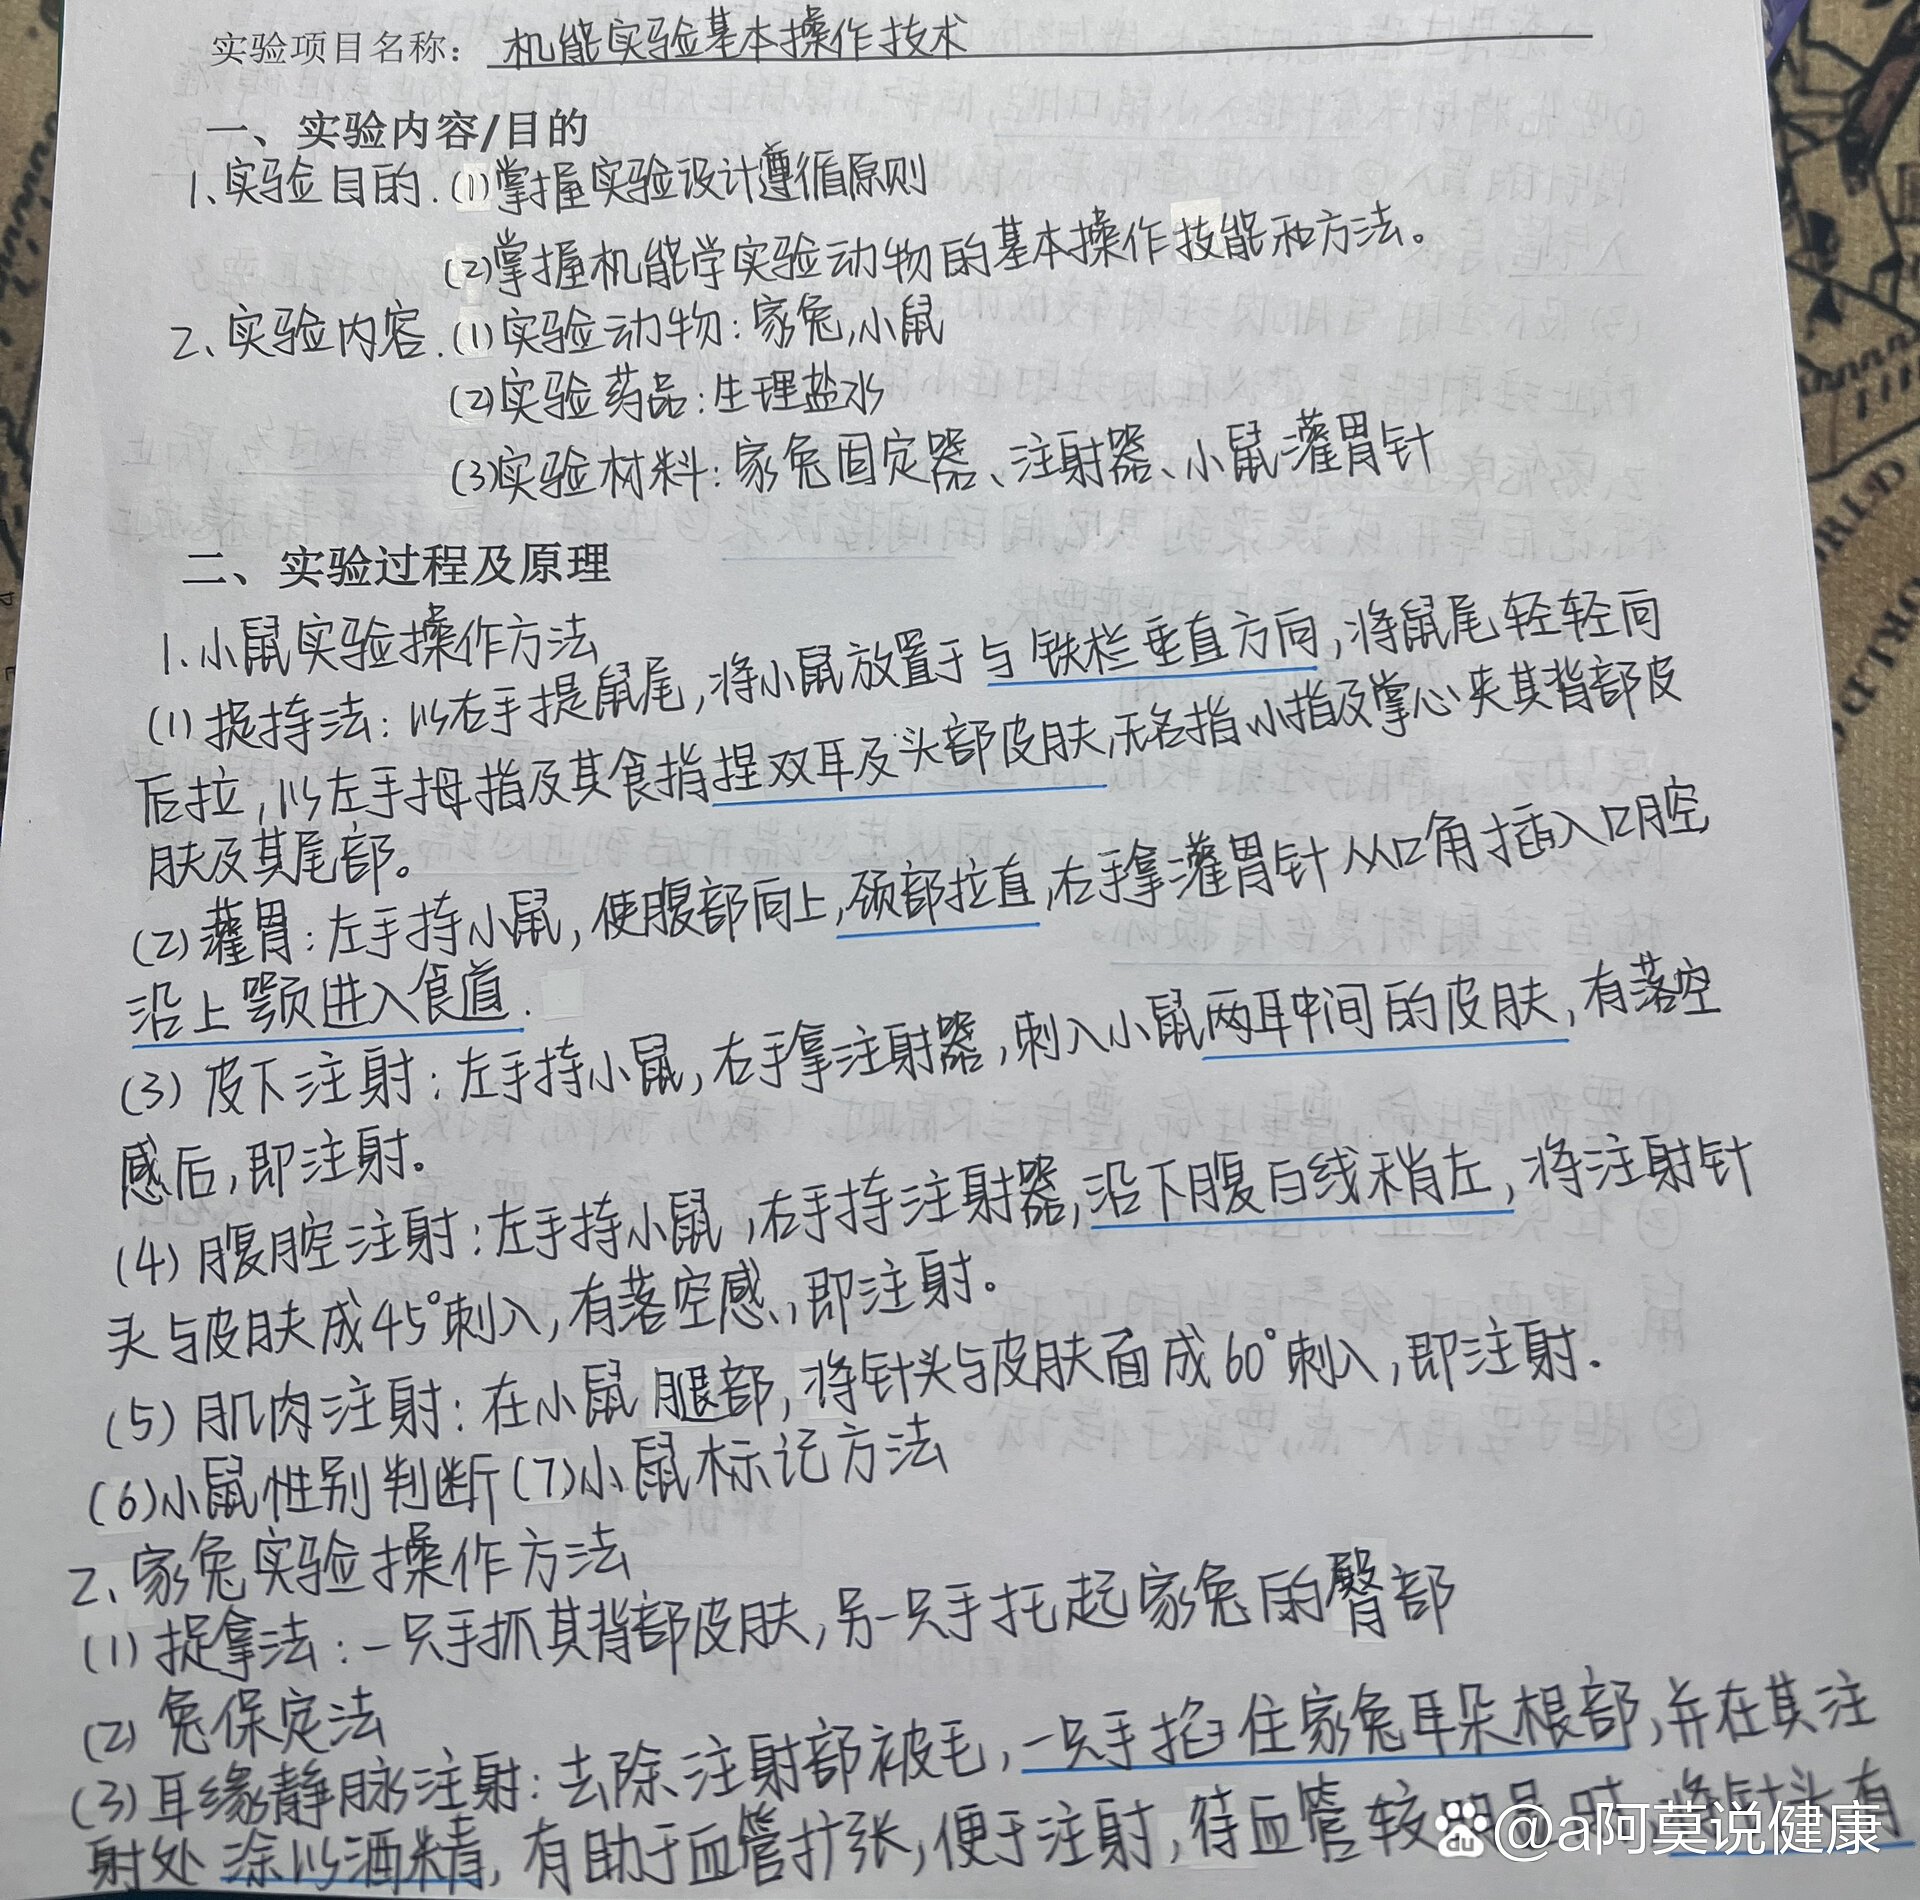 实验项目名称：机能实验基本操作技术
一、实验内容/目的
1、实验目的.(1)掌握实验设计遵循原则
(2)掌握机能学实验动物的基本操作技能和方法。
2、实验内容.(1)实验动物：家兔,小鼠
(2)实验药品：生理盐水
(3)实验材料：家兔固定器、注射器、小鼠灌胃针
二、实验过程及原理
1.小鼠实验操作方法
(1)捉持法：以右手提鼠尾,将小鼠放置于与铁栏垂直方向,将鼠尾轻轻向
后拉,以左手拇指及其食指捏双耳及头部皮肤,无名指小指及掌心夹其背部皮
肤及其尾部。
(2)灌胃：左手持小鼠,使腹部向上,颈部拉直,右手拿灌胃针从口角插入口腔
沿上颚进入食道.
(3)皮下注射：左手持小鼠,右手拿注射器,刺入小鼠两耳中间的皮肤,有落空
感后,即注射。
(4)腹腔注射：左手持小鼠,右手持注射器,沿下腹白线稍左,将注射针
头与皮肤成45°刺入,有落空感,即注射。
(5)肌肉注射：在小鼠腿部,将针头与皮肤面成60°刺入,即注射.
(6)小鼠性别判断(7)小鼠标记方法
2、家兔实验操作方法
(1)捉拿法：一只手抓其背部皮肤,另一只手托起家兔的臀部
(2)兔保定法
(3)耳缘静脉注射：去除注射部被毛,一只手掐住家兔耳朵根部,并在其注
射处涂以酒精,有助于血管扩张,便于注射,待血管较 时 将针头有
@a阿莫说健康